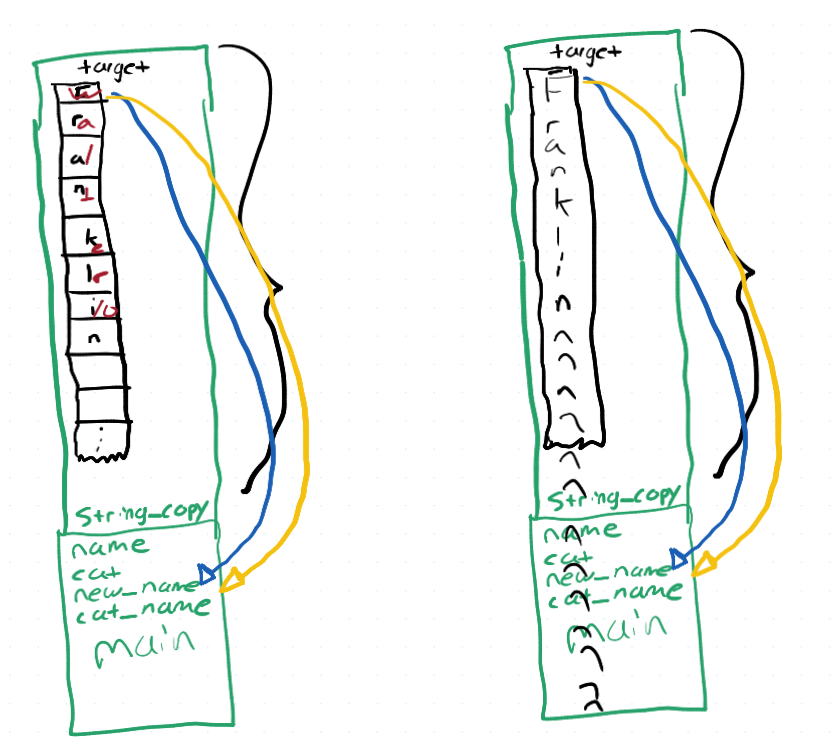 target
ra
a/
n
k
l
i/o
n
String_copy
name
cat
new_name
cat_name
main
target
F
r
a
n
k
l
i
n
String_copy
name
cat
new_name
cat_name
main